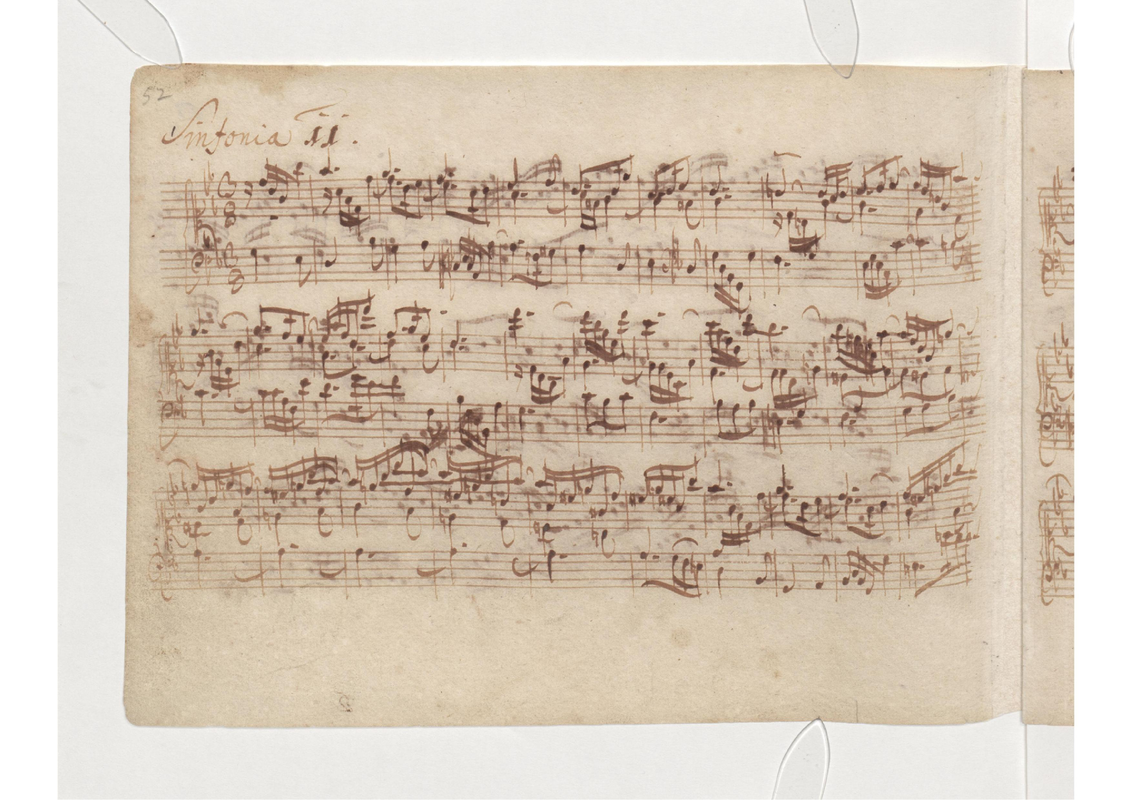 52
Sinfonia 11.